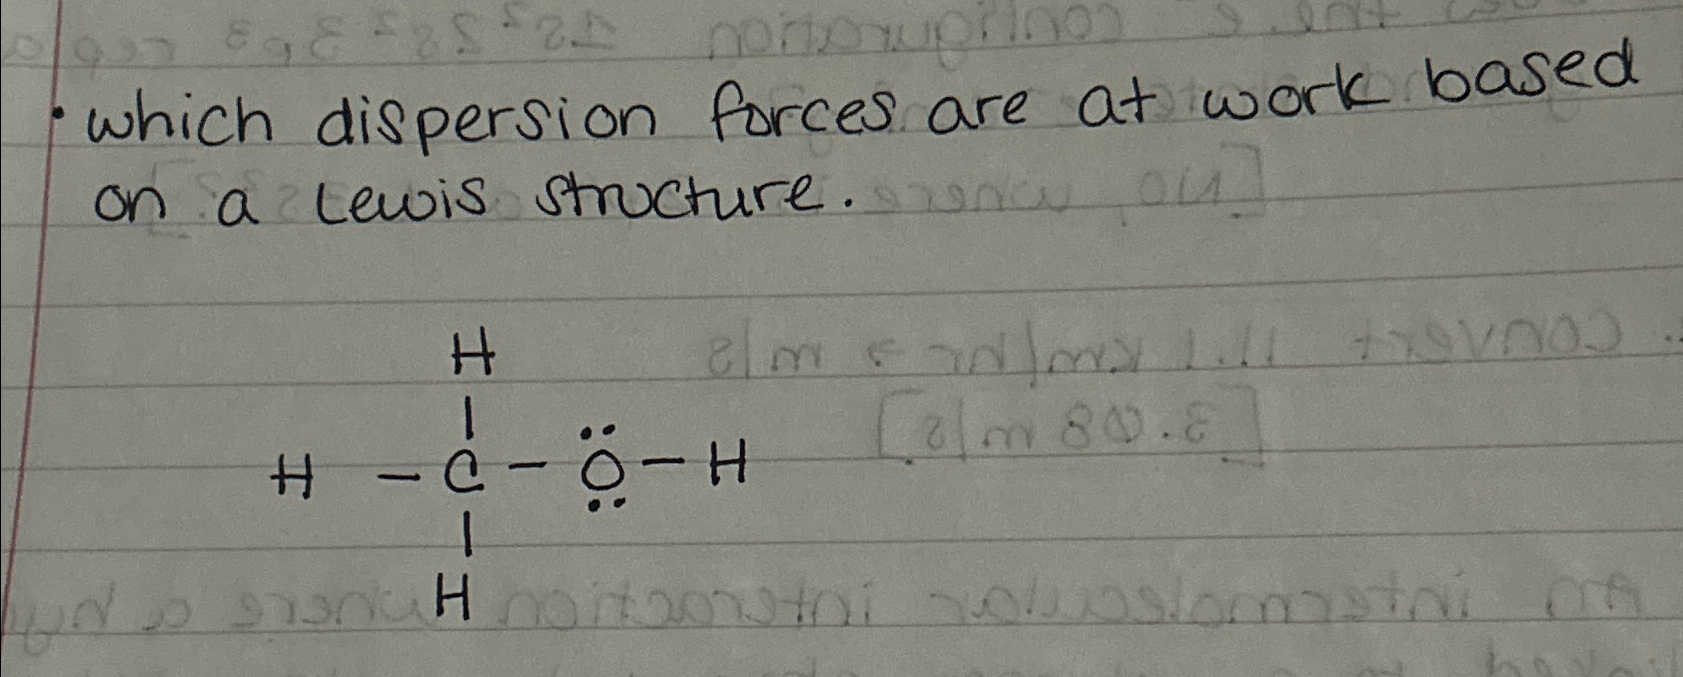 • which dispersion forces are at work based
on a Lewis structure.
H
|
H - C - Ö - H
|
H